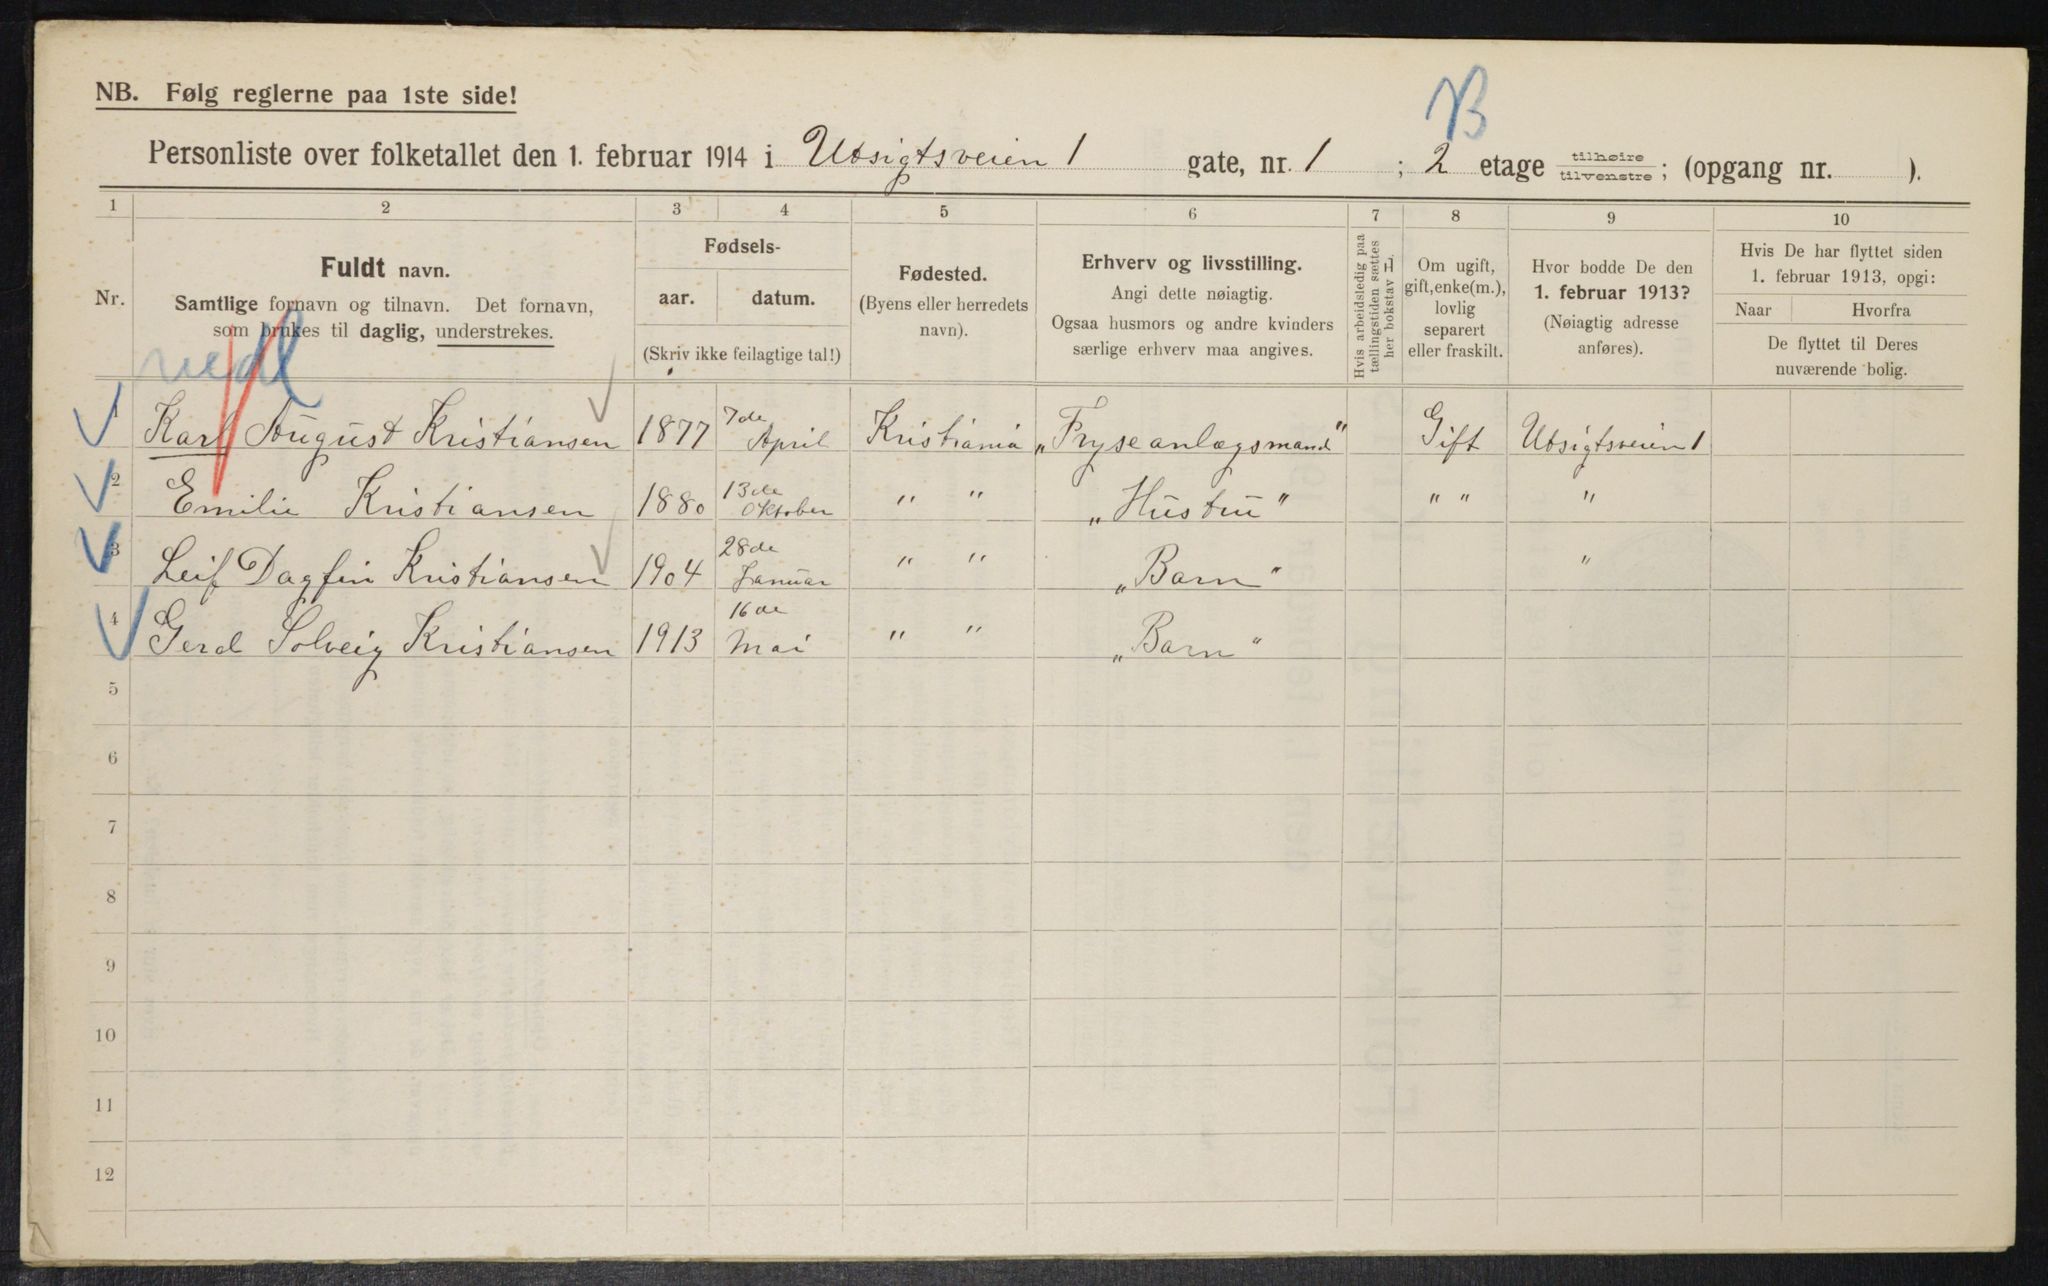 NB. Følg reglerne paa 1ste side!
B
Personliste over folketallet den 1. februar 1914 i Utsigtsveien 1 gate, nr. 1 ; 2 etage tilhøire tilvenstre ; (opgang nr. ).
1 2 3 4 5 6 7 8 9 10
Nr.
Fuldt navn.
Samtlige fornavn og tilnavn. Det fornavn,
som brukes til daglig, understrekes.
Fødsels-
aar. datum.
(Skriv ikke feilagtige tal!)
Fødested.
(Byens eller herredets
navn).
Erhverv og livsstilling.
Angi dette nøiagtig.
Ogsaa husmors og andre kvinders
særlige erhverv maa angives.
Hvis arbeidsledig paa
tællingstiden sættes
her bokstav L.
Om ugift,
gift, enke(m.),
lovlig
separert
eller fraskilt.
Hvor bodde De den
1. februar 1913?
(Nøiagtig adresse
anføres).
Hvis De har flyttet siden
1. februar 1913, opgi:
Naar Hvorfra
De flyttet til Deres
nuværende bolig.
1 Karl August Kristiansen 1877 7de April Kristiania „Fryseanlægsmand" Gift Utsigtsveien 1
2 Emilie Kristiansen 1880 13de Oktober " " „Hustru" " " "
3 Leif Dagfin Kristiansen 1904 28de Januar " " „Barn" "
4 Gerd Solveig Kristiansen 1913 16de Mai " " „Barn"
5
6
7
8
9
10
11
12